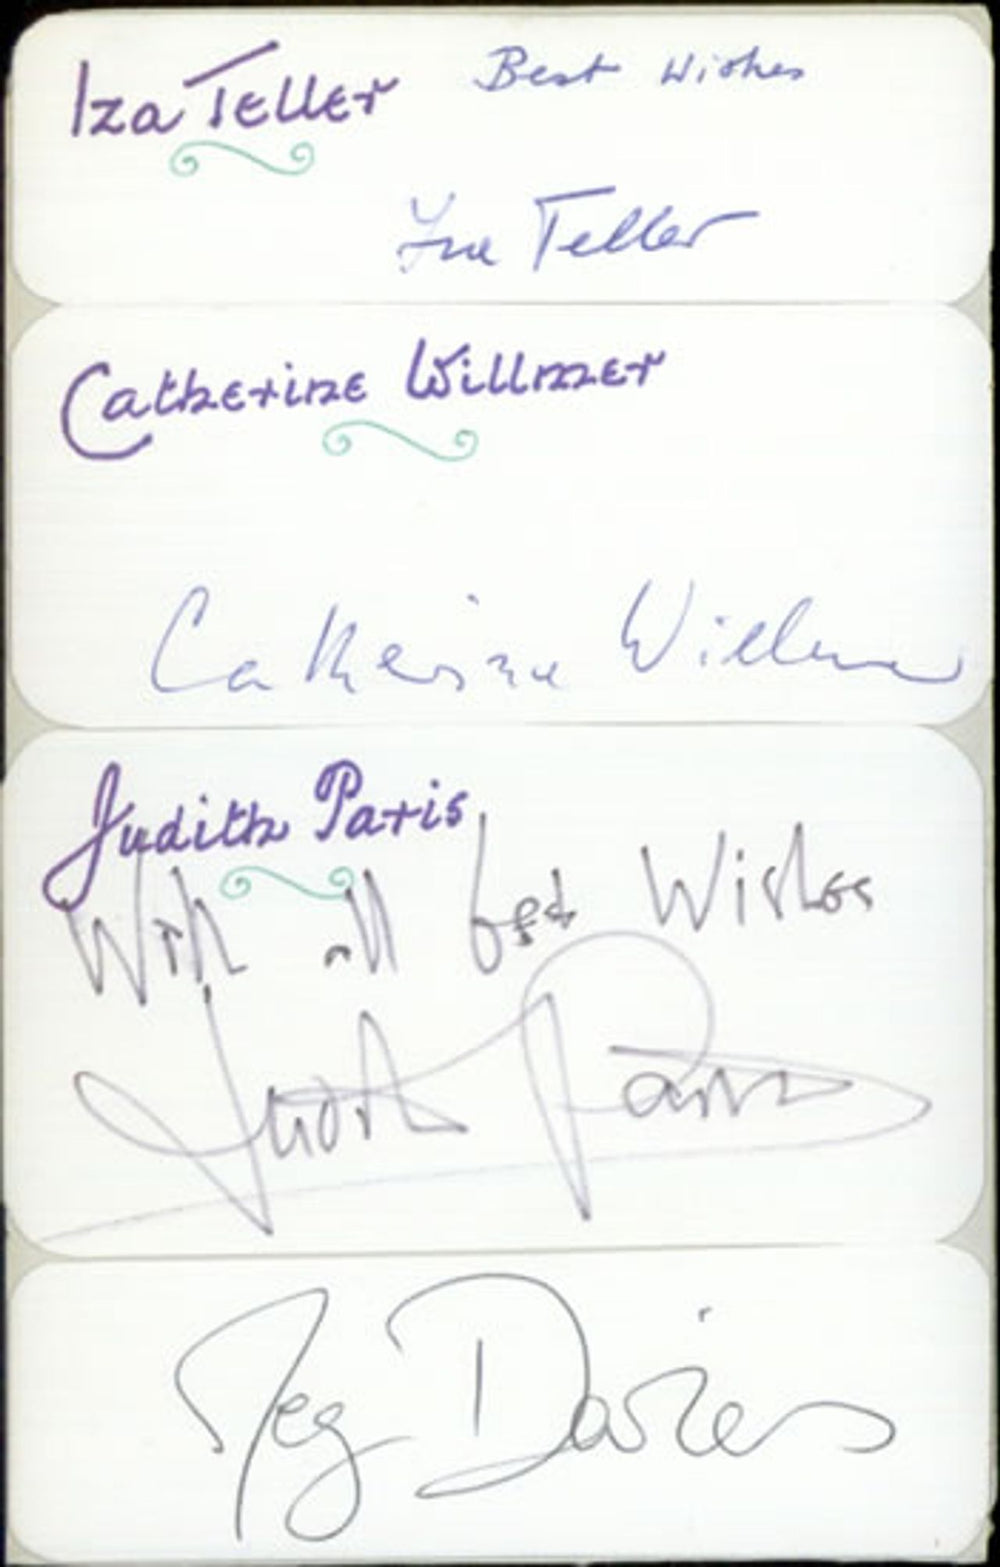 Iza Teller Best Wishes
Iza Teller
Catherine Willmer
Catherine Willmer
Judith Paris
With all best Wishes
Judith Paris
Meg Davies